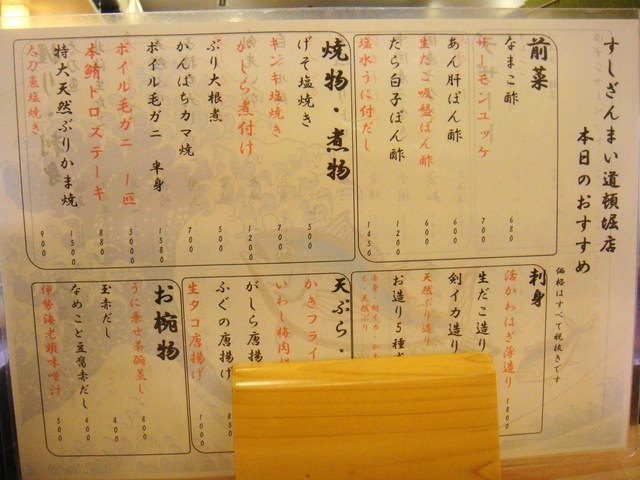 すしざんまい道頓堀店
本日のおすすめ
価格はすべて税抜きです
前菜
なまこ酢 680
サーモンユッケ 700
あん肝ぽん酢 600
生だこ吸盤ぽん酢 600
たら白子ぽん酢 1200
塩水うに付だし 1450
焼物・煮物
げそ塩焼き 500
キンキ塩焼き 700
がしら煮付け 1200
ぶり大根煮 500
かんぱちカマ焼 700
ボイル毛ガニ 半身 1580
ボイル毛ガニ 1匹 3000
本鮪トロステーキ 880
特大天然ぶりかま焼 1500
太刀魚塩焼き 900
刺身
活かわはぎ薄造り 1800
生だこ造り
剣イカ造り
天然ぶり造り
お造り5種
天ぷら・
かきフライ
いわし梅肉
がしら唐揚げ
ふぐの唐揚げ 850
生タコ唐揚げ 1000
お椀物
うに乗せ茶碗蒸し 800
玉赤だし 400
なめこと豆腐赤だし 400
伊勢海老頭味噌汁 500